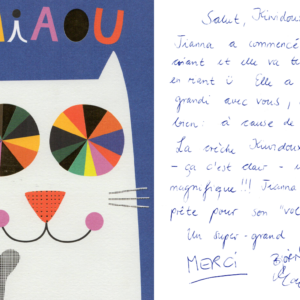 MiAOU
Salut, Kividou
Jranna a commencé
riant et elle va te
en riant ü Elle a
grandi avec vous,
bien: à cause de
La crèche Kividou
- ça c'est clair -
magnifique!!! Jranna
prête pour son "vol
Un super-grand
MERCI